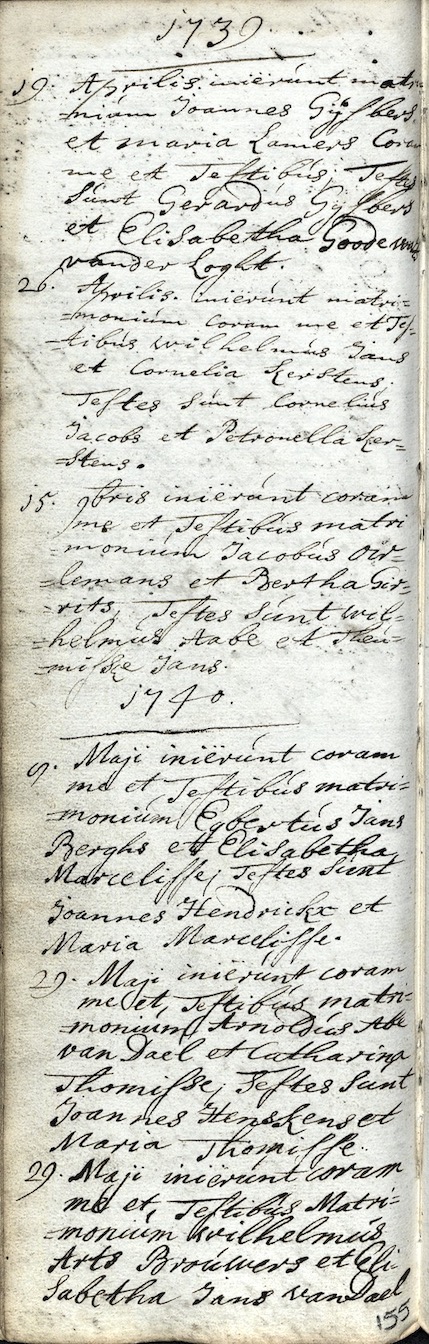 1739
19. Aprilis. iniërunt matri-
-nium Joannes Gijsbers
et maria Lamers Coram
me et Testibus; Testes
sunt Gerardus Gijsbers
et Elisabetha Goode
vander Loght.
26. Aprilis. iniërunt matri-
-monium coram me et Tes-
-tibus Wilhelmus Jans
et Cornelia Kerstens;
Testes sunt Cornelius
Jacobs et Petronella Ker-
-stens.
15. bris iniërunt coram
me et Testibus matri
-monium Jacobus Oir-
-lemans et Bertha Gir-
-rits; Testes sunt Wil-
-helmus Aabe et Theu-
-nisse Jans.
1740.
9. Maji iniërunt coram
me et Testibus matri-
-monium Egbertus Jans
Berghs et Elisabetha
Marcelisse; Testes sunt
Joannes Hendrickx et
Maria Marcelisse.
29. Maji iniërunt coram
me et, Testibus matri-
-monium Arnoldus Abe
van Dael et Catharina
Thomisse; Testes sunt
Joannes Henskens et
Maria Thomisse.
29. Maji iniërunt coram
me et, Testibus Matri-
-monium Wilhelmus
Arts Brouwers et Eli
sabetha Jans van Dael
155